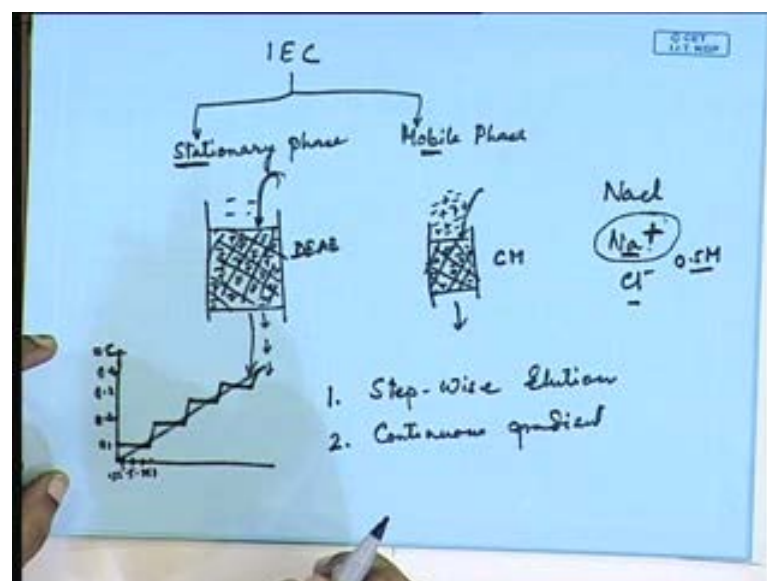 IEC
© CET
I.I.T. KGP
Stationary phase
Mobile Phase
DEAE
CM
NaCl
Na+
Cl-
0.5M
1. Step-Wise Elution
2. Continuous gradient